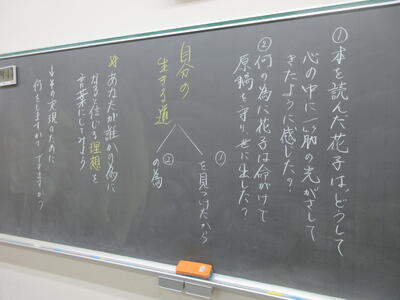 ①本を読んだ花子は、どうして
心の中に一筋の光がさして
きたように感じた?
②何の為に花子は命がけで
原稿を守り、世に出した?
自分の
生きる道
①
を見つけたから
②
の為
あなたが誰かの為に
なると信じる理想を
言葉にしてみよう
↓その実現のために
何をしますか?